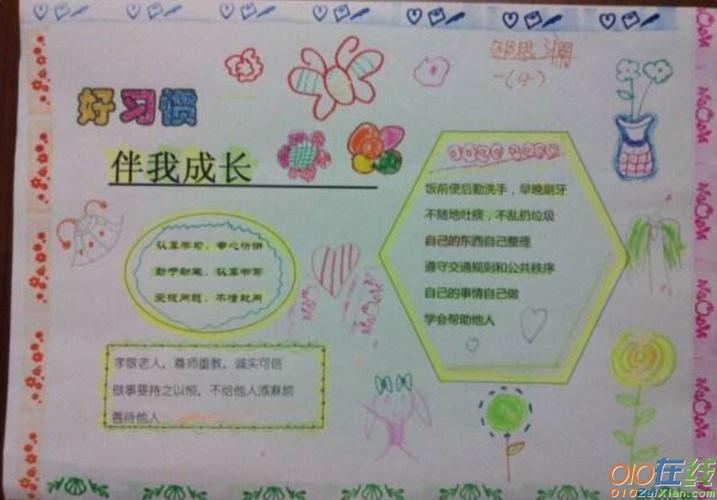 好习惯
伴我成长
邹思澜
一(4)
饭前便后勤洗手，早晚刷牙
不随地吐痰，不乱扔垃圾
自己的东西自己整理
遵守交通规则和公共秩序
自己的事情自己做
学会帮助他人
认真学习，专心听讲
勤于动笔，认真书写
发现问题，不懂就问
孝敬老人，尊师重教，诚实可信
做事要持之以恒，不给他人添麻烦
善待他人
010在线
010ZaiXian.com